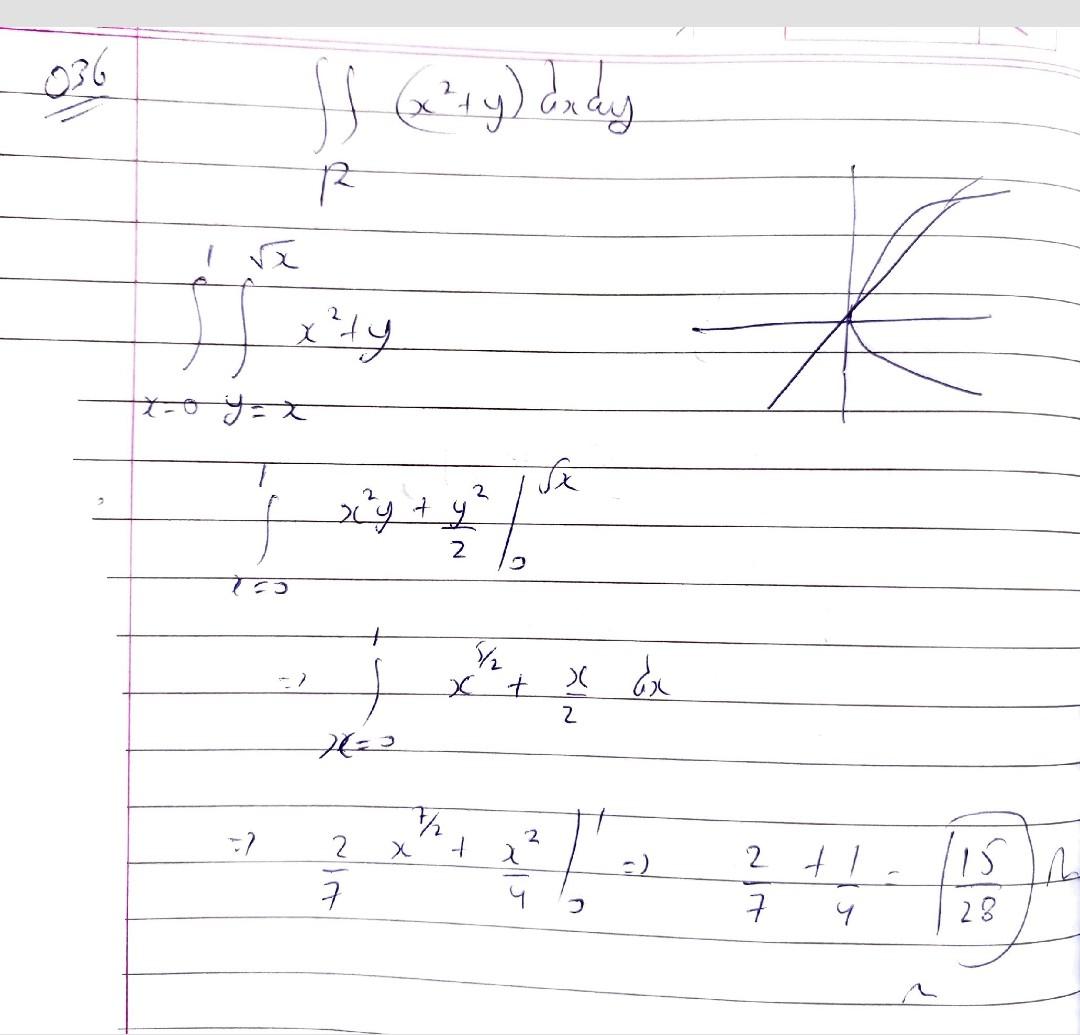 036
∫∫ (x²+y) dxdy
R
1 √x
∫ ∫ x²+y
x=0 y=x
1
∫ x²y + y²/2 |₀^√x
x=0
1
=> ∫ x^5/2 + x/2 dx
x=0
=> 2/7 x^7/2 + x²/4 |₀¹ => 2/7 + 1/4 = 15/28